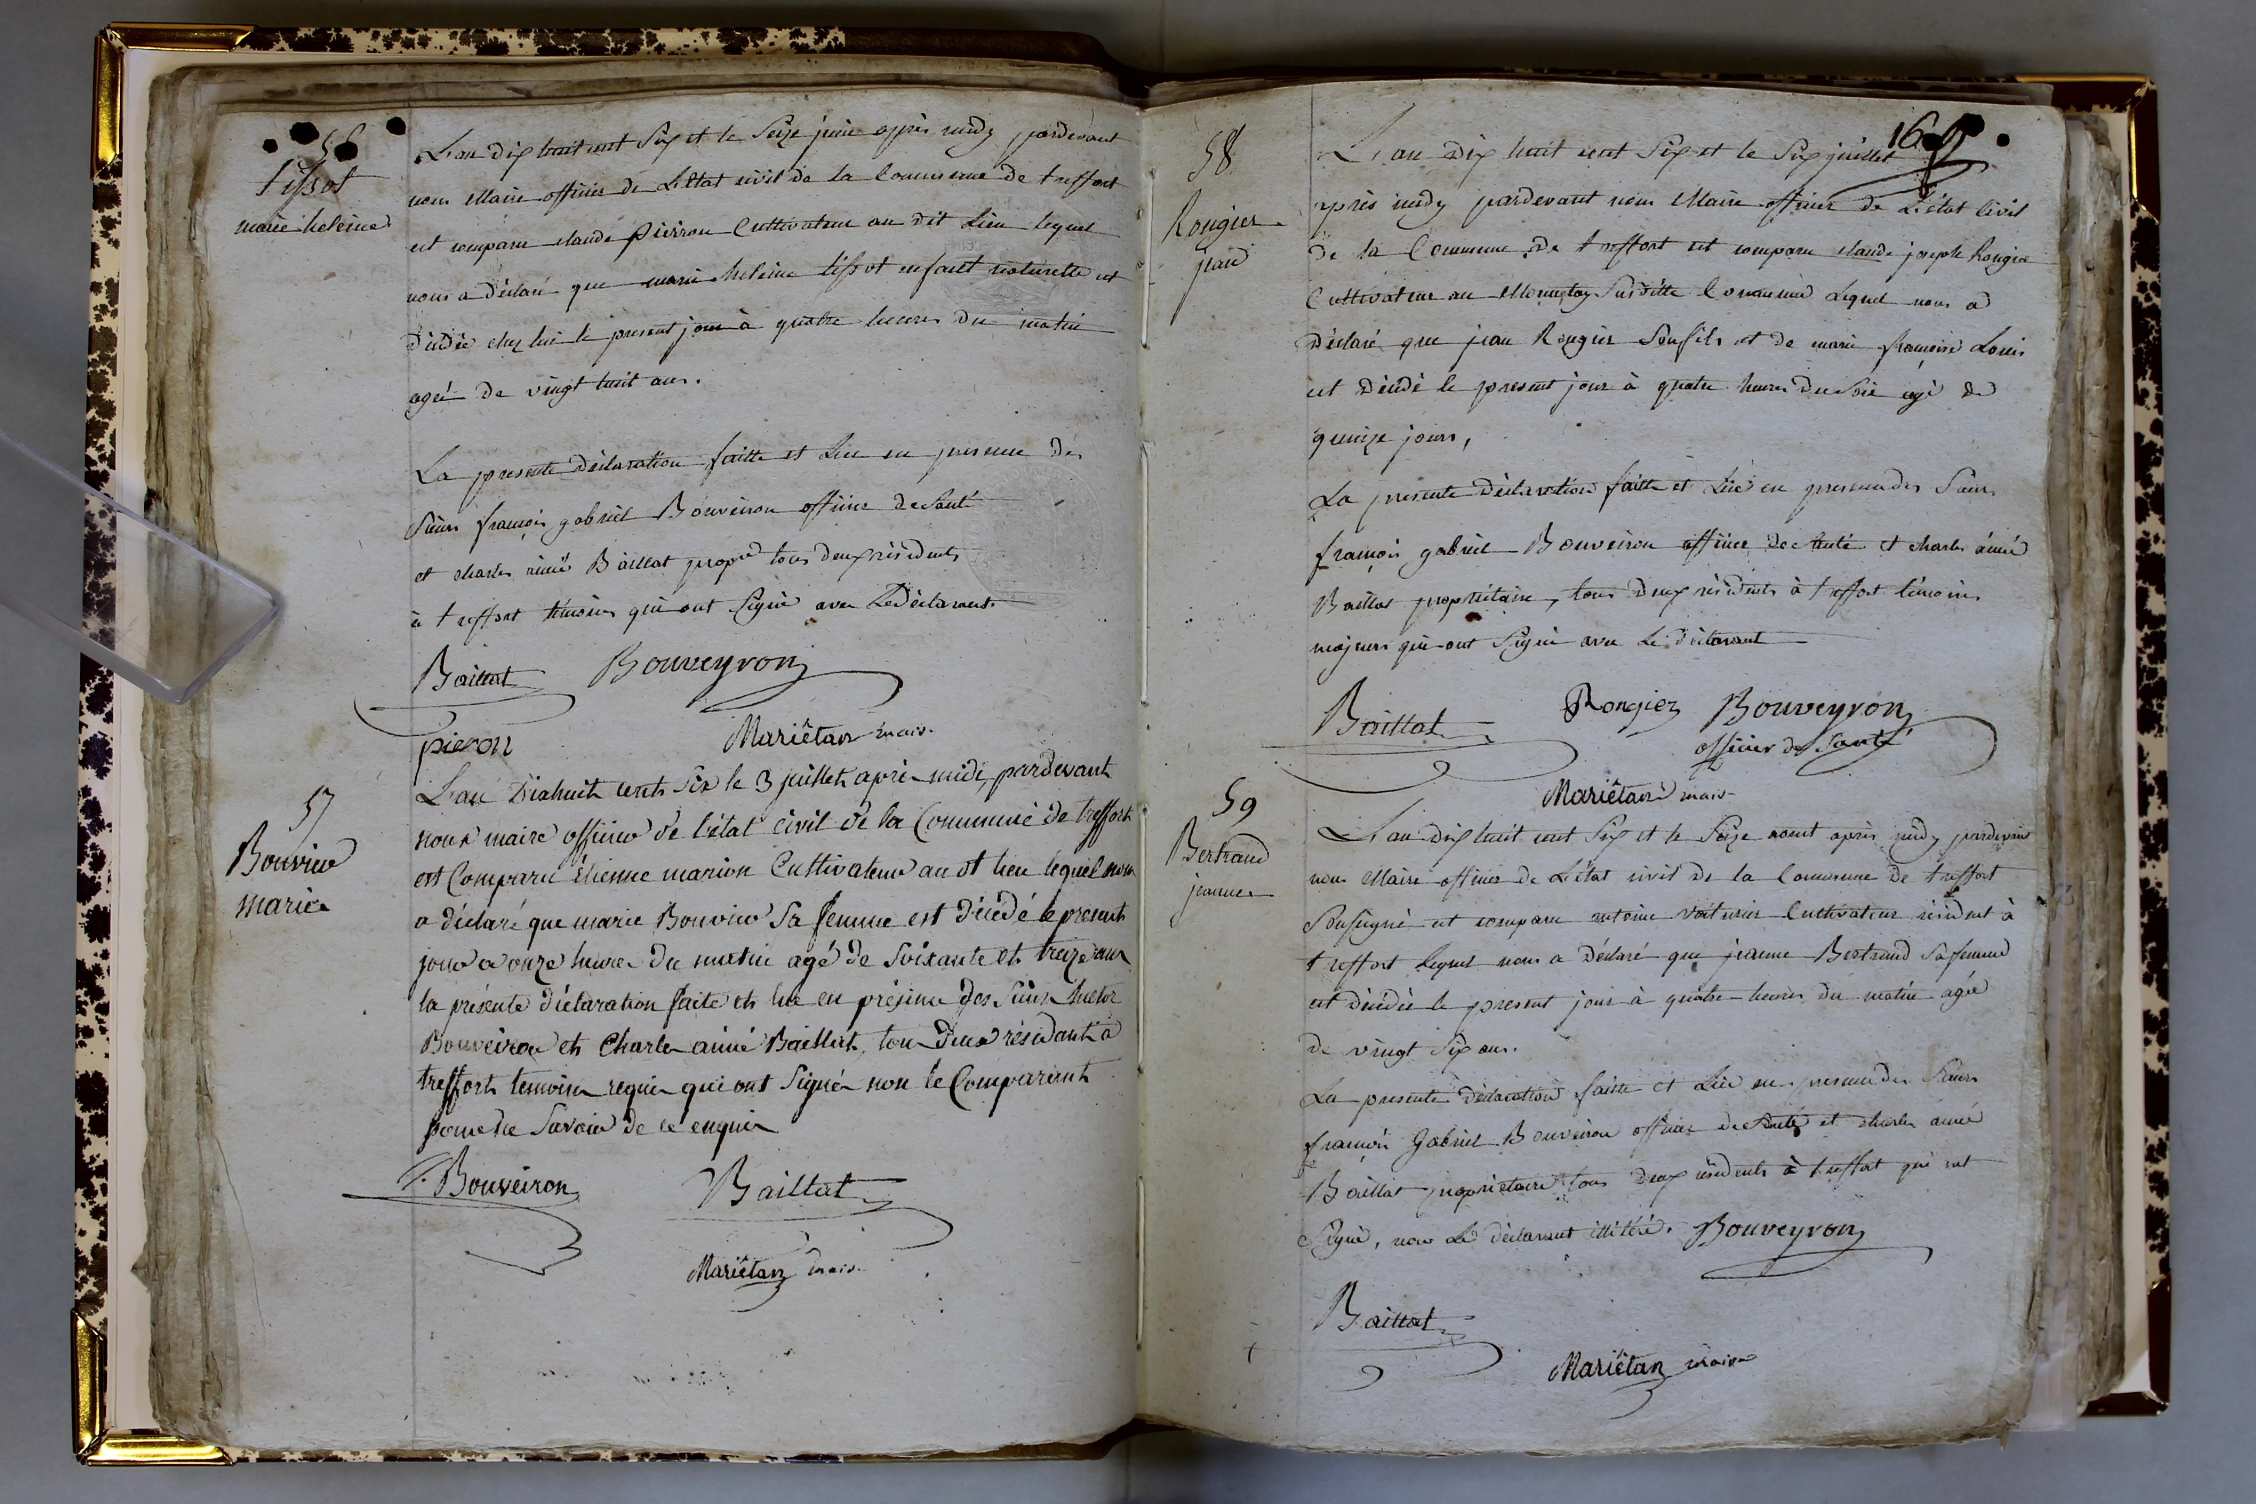 56
Tissot
marie helene
L'an dix huit cent Six et le Seize juin apprès midy pardevant
nous Maire officier de L'Etat civil de la Commune de treffort
est comparu claude pierron Cultivateur au dit Lieu lequel
nous a déclaré que marie helène tissot enfant naturelle est
décédée chez lui le present jour à quatre heures du matin
agée de vingt huit ans.
La presente déclaration faitte et Lue en presence des
Sieurs françois gabriel Bouveiron officier de Santé
et charles aimé Baillat propre tous deux résidents
à treffort témoins qui ont Signé avec Le déclarant.
Baillat Bouveyron
pieron Mariétan maire
57
Bouvier
marie
L'an Dixhuit cents Six le 3 juillet après midi, pardevant
nous maire officier de l'état civil de la Commune de treffort
est Comparu étienne marion Cultivateur au dt lieu lequel nous
a déclaré que marie Bouvier Sa femme est décédé le present
jour a onze heures du matin agé de Soixante et treize ans
la présente déclaration faite et lue en présence des Sieurs hector
Bouveiron et Charles aimé Baillat, tous deux résidant a
treffort temoins requis qui ont Signés non le Comparant
pour ne Savoir de ce enquis
Bouveiron Baillat
Mariétan maire
16
58
Rougier
jean
L'an dix huit cent Six et le Six juillet
après midy pardevant nous Maire officier de L'état Civil
de la Commune de treffort est comparu claude joseph Rougier
Cultivateur au Monnetay Susditte Commune Lequel nous a
déclaré que jean Rougier Son fils et de marie françoise Louis
est décédé le present jour à quatre heures du Soir agé de
quinze jours,
La presente déclaration faitte et Lue en presence des Sieurs
françois gabriel Bouveiron officier de Santé et charles aimé
Baillat propriétaire, tous deux résidents à treffort témoins
majeurs qui ont Signé avec Le déclarant
Baillat Rongiez Bouveyron
officier de Santé
Mariétan maire
59
Bertrand
jeanne
L'an dix huit cent Six et le Seize aout après midy pardevant
nous Maire officier de L'état civil de la Commune de treffort
Soussigné est comparu antoine voiturier Cultivateur résident à
treffort Lequel nous a déclaré que jeanne Bertrand Sa femme
est décédée le present jour à quatre heures du matin agée
de vingt Six ans.
La presente déclaration faitte et Lue en presence des Sieurs
françois Gabriel Bouveiron officier de Santé et charles aimé
Baillat propriétaire tous deux résidents à treffort qui ont
Signé, non Le déclarant illitéré. Bouveyron
Baillat
Mariétan maire